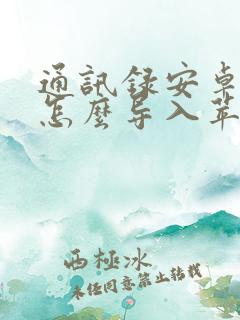 通訊録安卓
怎麼导入苹
西極冰
未经同意禁止转载